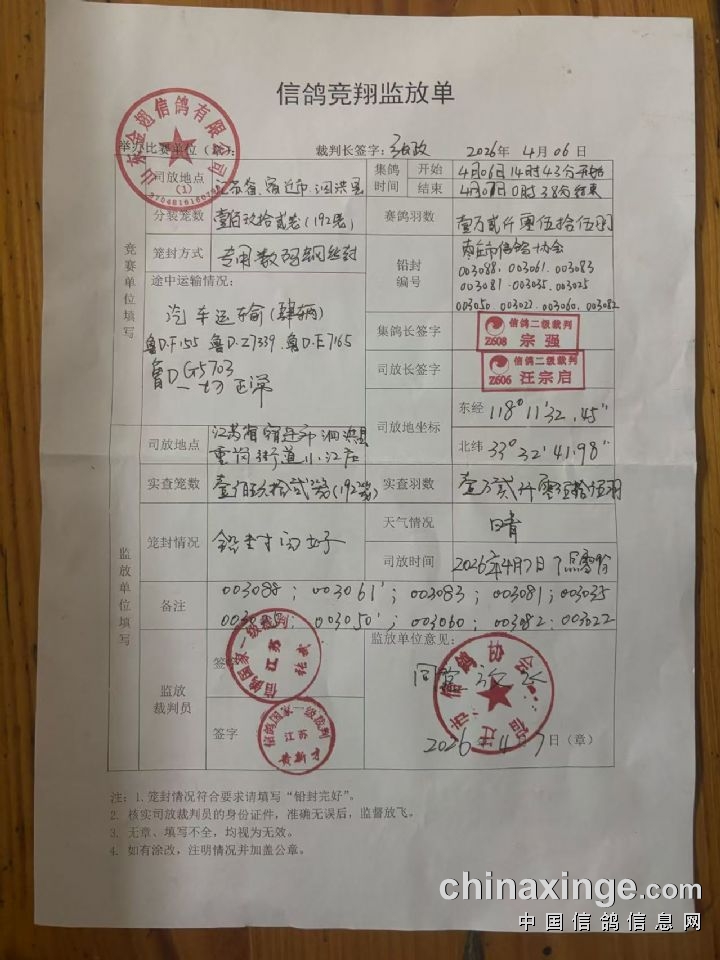 信鸽竞翔监放单
举办比赛单位(章): 裁判长签字: 张政 2026年 4月 06日
山东金翅信鸽有限公司
(1)
竞赛单位填写
司放地点 江苏省宿迁市泗洪县
集鸽时间 开始 4月06日14时43分开始
结束 4月07日0时38分结束
分装笼数 壹佰玖拾贰笼(192笼)
赛鸽羽数 壹万贰仟零伍拾伍羽
笼封方式 专用数码钢丝封
铅封编号 枣庄市信鸽协会
003088. 003061. 003083
003081. 003035. 003025
003050. 003022. 003060. 003082
途中运输情况:
汽车运输(肆辆)
鲁D·Z7339. 鲁D·E7165
鲁D G5703
一切正常
集鸽长签字 信鸽二级裁判
Z608 宗强
司放长签字 信鸽二级裁判
Z606 汪宗启
司放地坐标 东经 118°11′32.45″
北纬 33°32′41.98″
监放单位填写
司放地点 江苏省宿迁市泗洪县
重岗街道小江庄
实查笼数 壹佰玖拾贰笼(192笼)
实查羽数 壹万贰仟零伍拾伍羽
笼封情况 铅封完好
天气情况 晴
司放时间 2026年4月7日7点
备注 003088; 003061; 003083; 003081; 003035
003050; 003060; 003082; 003022
监放裁判员
签字
信鸽国家一级裁判
江苏
签字
信鸽国家一级裁判
江苏
黄新才
监放单位意见:
同意放飞
宿迁市信鸽协会
2026年4月7日(章)
注: 1. 笼封情况符合要求请填写“铅封完好”。
2. 核实司放裁判员的身份证件,准确无误后,监督放飞。
3. 无章、填写不全,均视为无效。
4. 如有涂改,注明情况并加盖公章。
chinaxinge.com
中国信鸽信息网